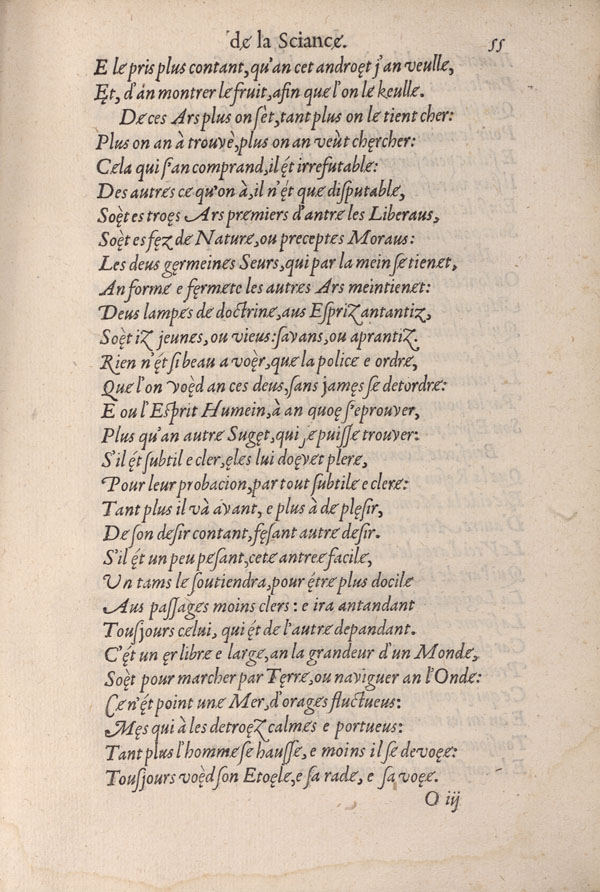 de la Sciance. 55
E le pris plus contant, qu'an cet androęt j'an veulle,
Ęt, d'an montrer le fruit, afin que l'on le keulle.
De ces Ars plus on sęt, tant plus on le tient cher:
Plus on an à trouvè, plus on an veùt chęrcher:
Cela qui s'an comprand, il ę́t irrefutable:
Des autres ce qu'on à, il n'ę́t que disputable,
Soę̀t es troęs Ars premiers d'antre les Liberaus,
Soę̀t es fęz de Nature, ou preceptes Moraus:
Les deus gęrmeines Seurs, qui par la mein se tienet,
An forme e fęrmete les autres Ars meintienet:
Deus lampes de doctrine, aus Espriz antantiz,
Soę̀t iz jeunes, ou vieus: savans, ou aprantiz.
Rien n'ę́t si beau a voę̀r, que la police e ordre,
Que l'on voę̀d an ces deus, sans jamęs se detordre:
E ou l'Esprit Humein, à an quoę s'eprouver,
Plus qu'an autre Sugęt, qui se puisse trouver:
S'il ę́t subtil e cler, ęles lui doęvet plere,
Pour leur probacion, par tout subtile e clere:
Tant plus il và avant, e plus à de plęsir,
De son desir contant, fęsant autre desir.
S'il ę́t un peu pesant, cete antree facile,
Un tams le soutiendra, pour ę́tre plus docile
Aus passages moins clers: e ira antandant
Tousjours celui, qui ę́t de l'autre depandant.
C'ę́t un ęr libre e large, an la grandeur d'un Monde,
Soę̀t pour marcher par Tęrre, ou naviguer an l'Onde:
Ce n'ę́t point une Mer, d'orages fluctueus:
Męs qui à les detroęz calmes e portueus:
Tant plus l'homme se hausse, e moins il se devoęe:
Tousjours voę̀d son Etoęle, e sa rade, e sa voęe.
O iij